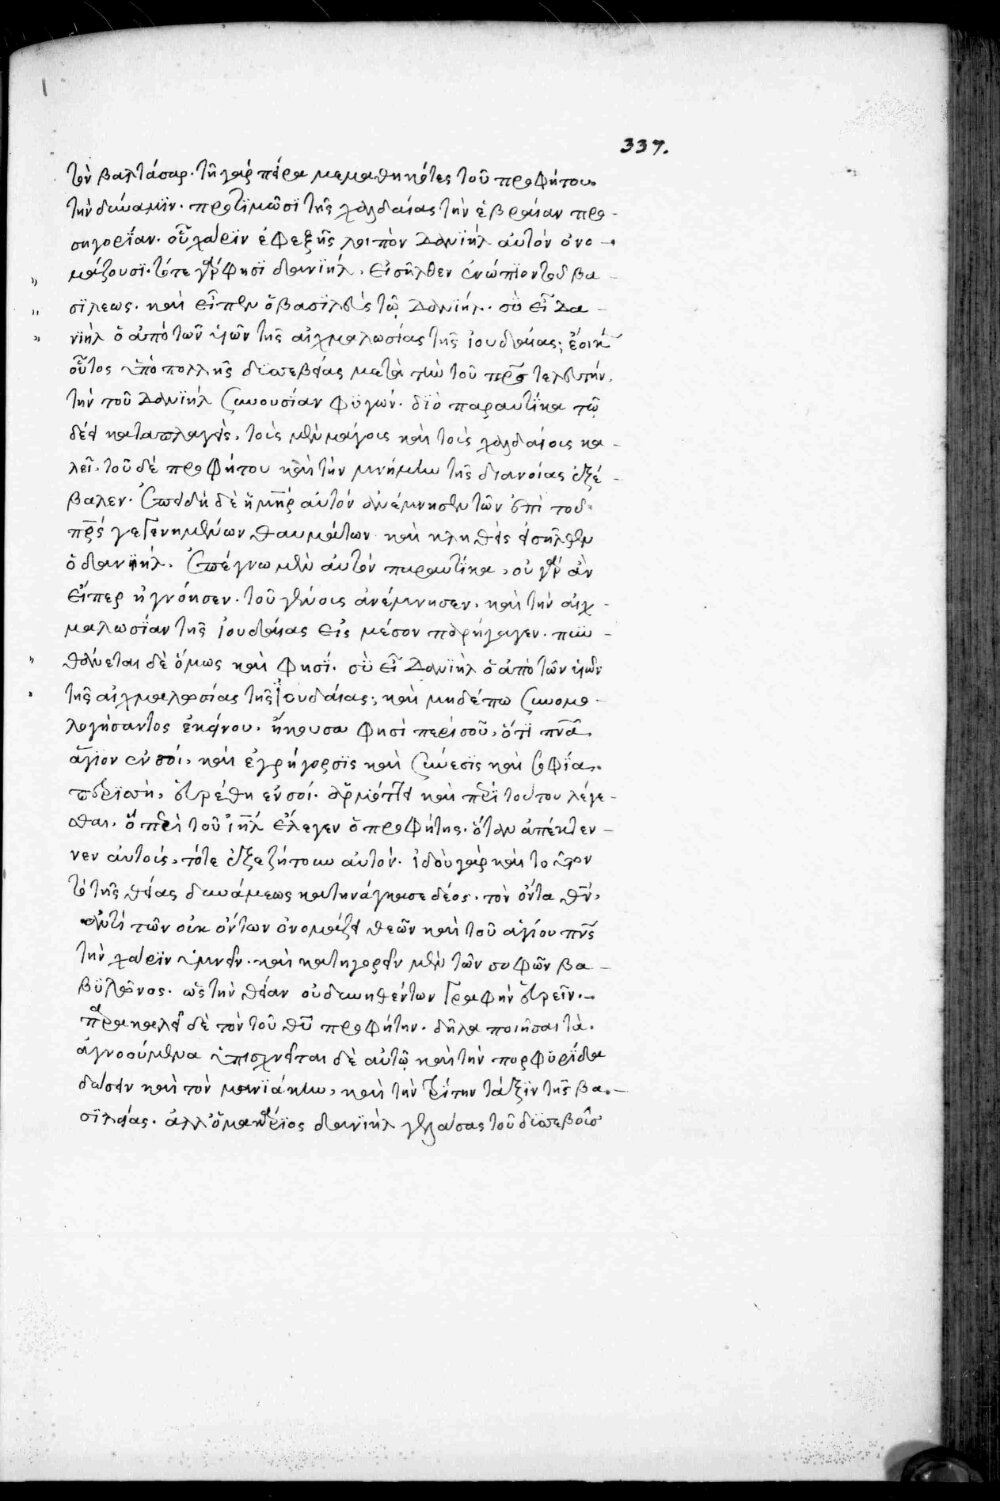 337.
τὸν βαλτάσαρ. τῇ γὰρ πέρα μεμαθηκότες τοῦ προφήτου
τὴν δύναμϊν. προτϊμῶσϊ τῆς χαλδαίας τὴν ἑβραίαν προ-
σηγορΐαν. οὗ χάρϊν ἐφεξῆς λοιπὸν Δανϊὴλ αὐτὸν ὀνο-
μάζουσϊ. τότε γὰρ φησϊ δανϊὴλ, εἰσῆλθεν ἐνώπϊον τοῦ βα-
σϊλεως. καὶ εἶπεν ὁ βασϊλεὺς τῷ Δανϊήλ. σὺ εἶ Δα-
νϊὴλ ὁ ἀπὸ τῶν υἱῶν τῆς αἰχμαλωσίας τῆς ἰουδαίας; ἔοικε
οὗτος ὑπὸ πολλῆς δϋσσεβείας μετὰ τὴν τοῦ πρς τελευτήν,
τὴν τοῦ Δανϊὴλ συνουσίαν φϋγών. δϊὸ παραυτΐκα τῷ
δέει καταπλαγεὶς, τοὺς μὲν μάγους καὶ τοὺς χαλδαίους κα-
λεῖ. τοῦ δὲ προφήτου καὶ τὴν μνήμην τῆς διανοίας ἐξέ-
βαλεν. ἐπειδὴ δὲ ἡ μηρ αὐτὸν ἀνέμνησεν τῶν ἐπὶ τοῦ
πρς γεγενημένων θαυμάτων καὶ κληθεὶς εἰσῆλθεν
ὁ δανιήλ. ἐπέγνω μὲν αὐτὸν παραυτίκα, οὐ γὰρ ἂν
εἴπερ ἠγνόησεν. τοῦ γένους ἀνέμνησεν, καὶ τὴν αἰχ-
μαλωσΐαν τῆς ἰουδαίας εἰς μέσον παρήγαγεν. πυν-
θάνεται δὲ ὅμως καὶ φησί. σὺ εἶ Δανϊὴλ ὁ ἀπὸ τῶν υἱῶν
τῆς αἰχμαλωσίας τῆς ἰουδαίας; καὶ μηδέπω συνομο-
λογήσαντος ἐκείνου. ἤκουσα φησὶ περὶ σοῦ, ὅτϊ πνα
ἅγϊον ἐν σοί, καὶ ἐγρήγορσϊς καὶ σύνεσϊς καὶ σοφΐα
περϊσσὴ, εὑρέθη ἐν σοί. ἁρμόττει καὶ περὶ τούτου λέγε-
σθαι. ὃ περὶ τοῦ ἰηλ ἔλεγεν ὁ προφήτης. ὅταν ἀπέκτεν-
νεν αὐτοὺς, τότε ἐξεζήτουν αὐτόν. ἰδοὺ γὰρ καὶ τοῦτον
τὸ τῆς θείας δυνάμεως κατηνάγκασε δέος. τὸν ὄντα θν,
ἀντὶ τῶν οὐκ ὄντων ὀνομάζει θεῶν καὶ τοῦ ἁγίου πνς
τὴν χάρϊν ὑμνεῖν. καὶ κατηγορεῖν μὲν τῶν σοφῶν βα-
βϋλῶνος. ὡς τὴν θείαν οὐ δυνηθέντων γραφὴν εὑρεῖν.-
παρακαλεῖ δὲ τὸν τοῦ θυ προφήτην. δῆλα ποιῆσαι τὰ
ἀγνοούμενα ὑπισχνεῖται δὲ αὐτῷ καὶ τὴν πορφϋρΐδα
δώσειν καὶ τὸν μανϊάκην, καὶ τὴν τρίτην τάξϊν τῆς βα-
σϊλείας. ἀλλ' ὁ μακάρϊος δανϊὴλ γελάσας τοῦ δϋσσεβοῦς